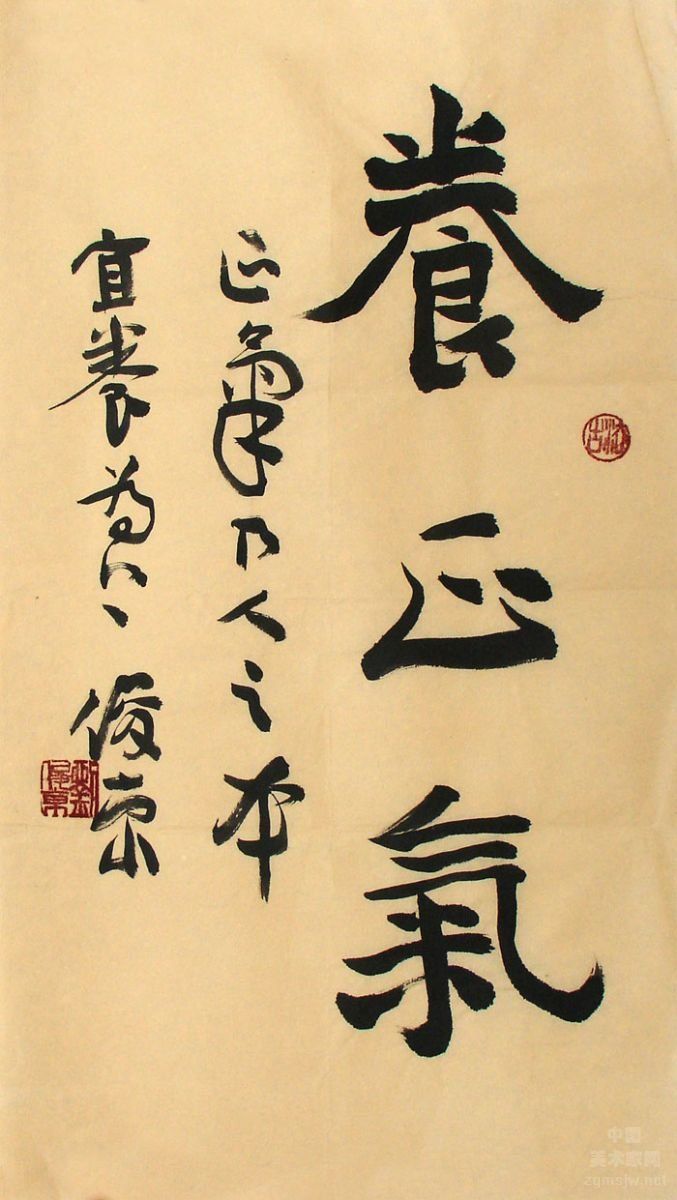 養正氣
正氣乃人之本
宜養為上 俊東
劉俊東
中国
美术家网
zgmsjw.net